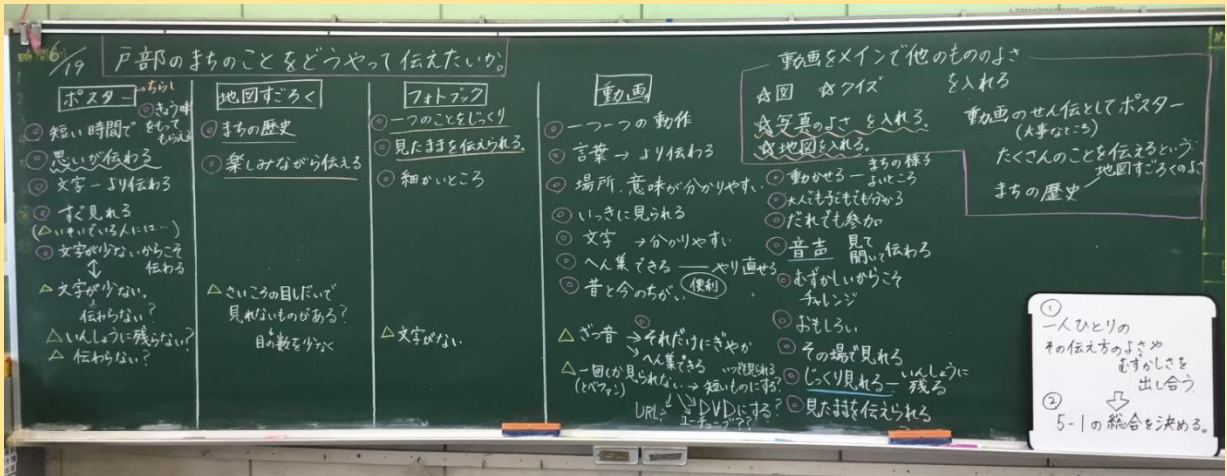 6/19 戸部のまちのことをどうやって伝えたいか。
ポスター→ちらし
◎きょう味をもってもらえる
◎短い時間で
◎思いが伝わる
◎文字ーより伝わる
◎すぐ見れる
(△いそいでいる人には…)
◎文字が少ないからこそ
伝わる
△文字が少ない。
伝わらない?
△いんしょうに残らない?
△伝わらない?
地図すごろく
◎まちの歴史
◎楽しみながら伝える
△さいころの目しだいで
見れないものがある?
目の数を少なく
フォトブック
◎一つのことをじっくり
◎見たままを伝えられる。
◎細かいところ
△文字がない。
動画
◎一つ一つの動作
◎言葉→より伝わる
◎場所、意味が分かりやすい
◎いっきに見られる
◎文字→分かりやすい
◎へん集できる――やり直せる
便利
◎昔と今のちがい
△ざつ音→それだけにぎやか
→へん集できる
いつでも見られる
△一回しか見られない→短いものにする?
(とべファン)
URL?
ユーチューブ??
DVDにする?
◎動かせるー
まちの様子
よいところ
◎大人でも子どもでも分かる
◎だれでも参加
◎音声 見て聞いて伝わる
◎むずかしいからこそ
チャレンジ
◎おもしろい
◎その場で見れる
◎じっくり見れるーいんしょうに残る
◎見たままを伝えられる
動画をメインで他のもののよさ
を入れる
☆図 ☆クイズ
☆写真のよさを入れる。
☆地図を入れる。
動画のせん伝としてポスター
(大事なところ)
たくさんのことを伝えるという
地図すごろくのよさ
まちの歴史
①
一人ひとりの
その伝え方のよさや
むずかしさを
出し合う
⇩
②
5-1の総合を決める。